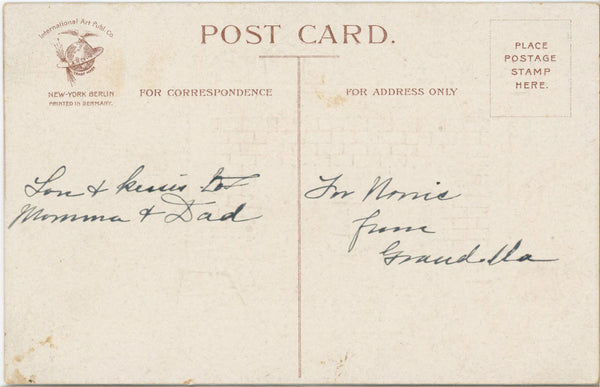 International Art Publ. Co.
NEW-YORK BERLIN
PRINTED IN GERMANY.
POST CARD.
PLACE
POSTAGE
STAMP
HERE.
FOR CORRESPONDENCE
FOR ADDRESS ONLY
Love & kisses to
Momma & Dad
For Norris
from
Grand